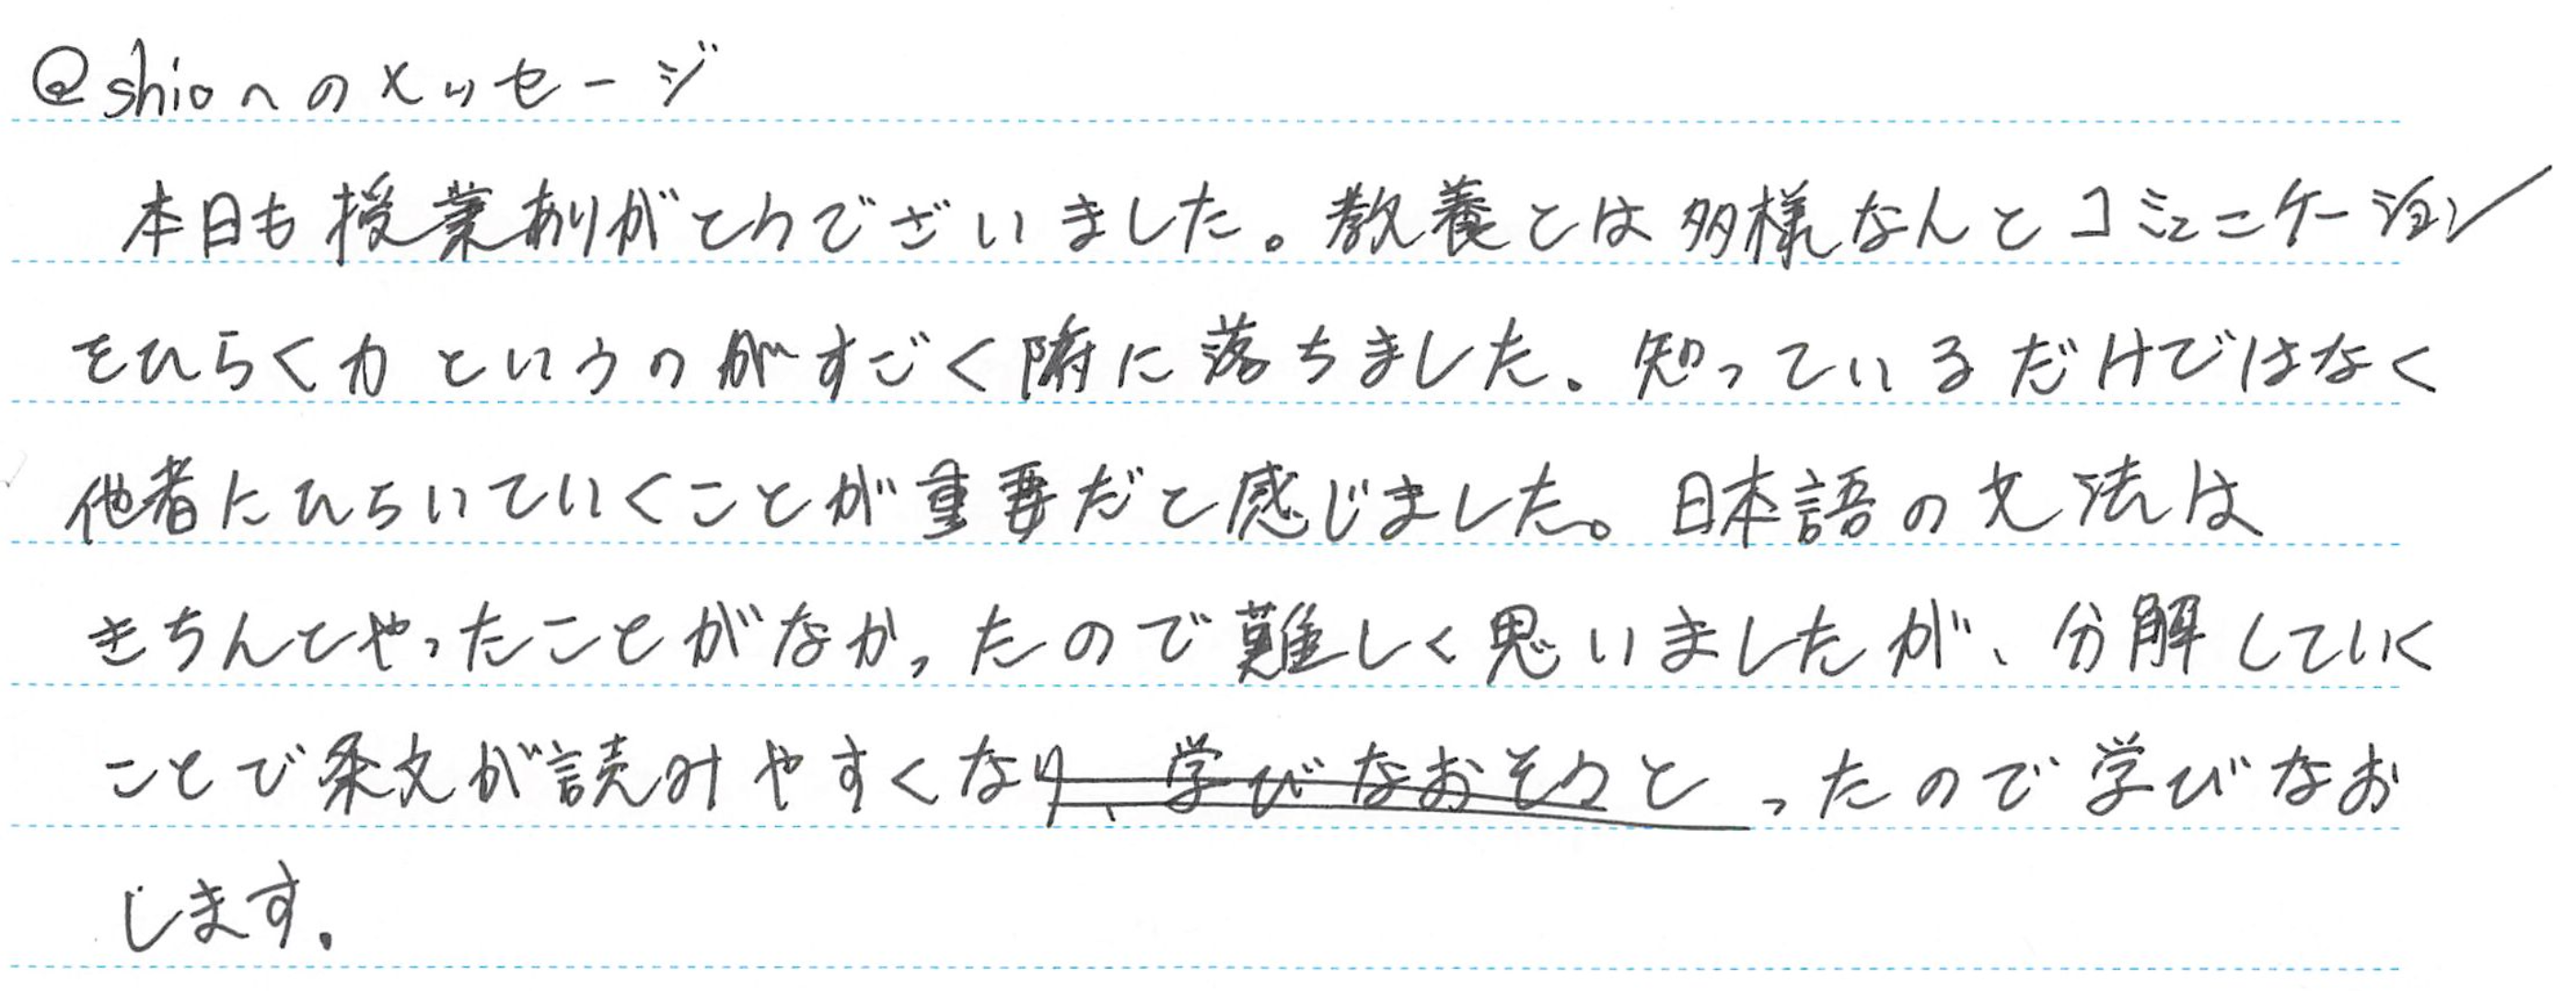 @shioへのメッセージ
本日も授業ありがとうございました。教養とは多様なんとコミュニケーション
をひらく力というのがすごく腑に落ちました。知っているだけではなく
他者にひらいていくことが重要だと感じました。日本語の文法は
きちんとやったことがなかったので難しく思いましたが、分解していく
ことで条文が読みやすくなり、学びなおそうと ったので学びなお
します。